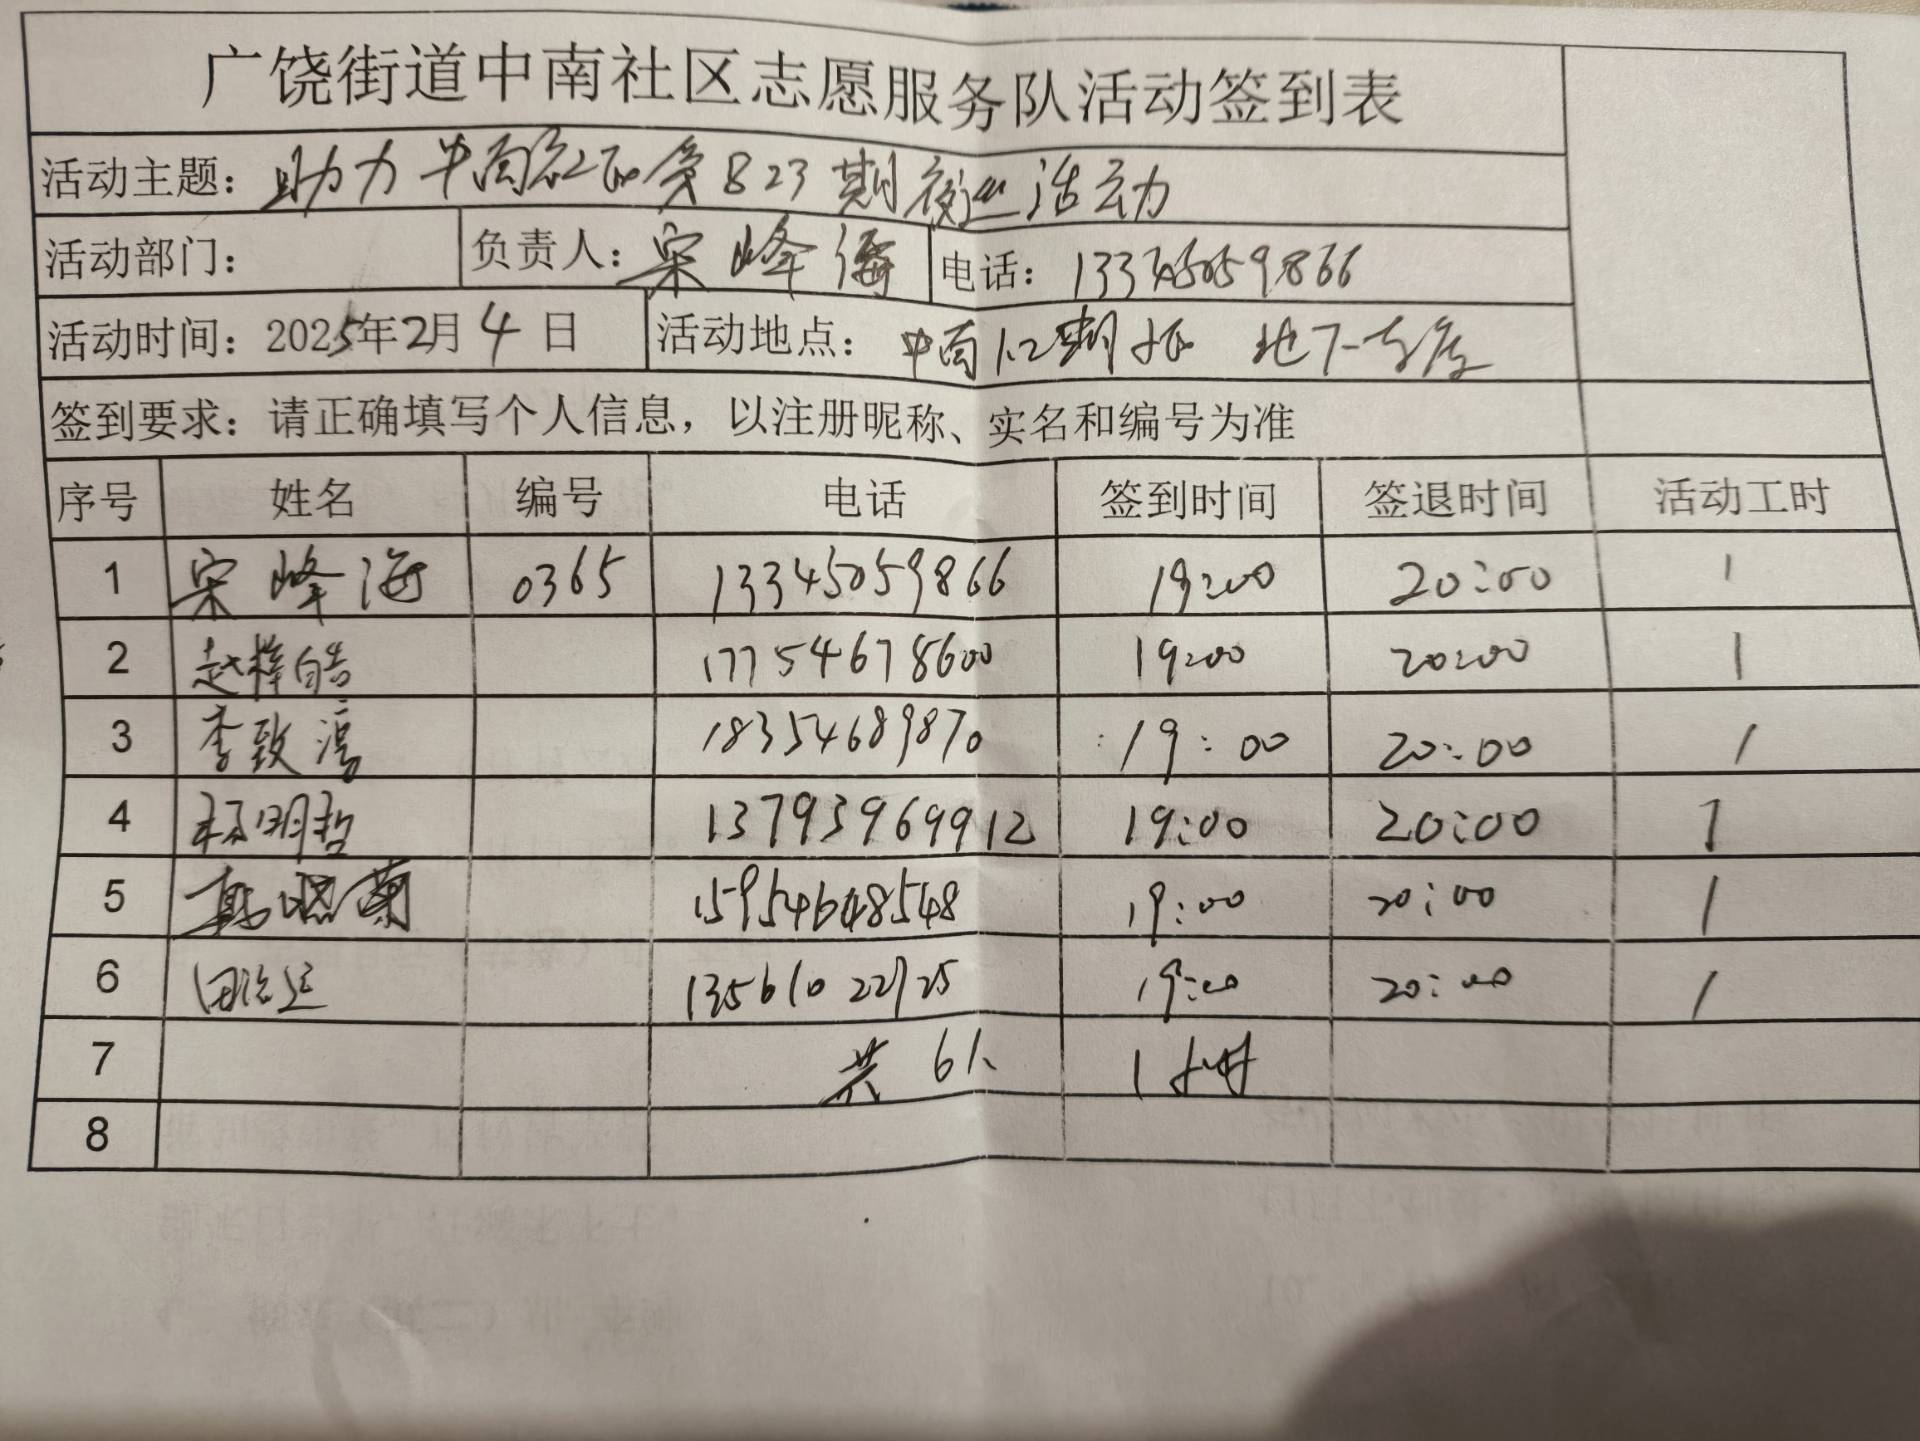 广饶街道中南社区志愿服务队活动签到表
活动主题：助力中南社区第823期夜巡活动
活动部门： 负责人：宋峰海 电话：13345059866
活动时间：2025年2月4日 活动地点：中南1.2期 地下车库
签到要求：请正确填写个人信息，以注册昵称、实名和编号为准
序号 姓名 编号 电话 签到时间 签退时间 活动工时
1 宋峰海 0365 13345059866 19:00 20:00 1
2 赵梓皓 17754678600 19:00 20:00 1
3 李致 18354689870 19:00 20:00 1
4 杨明哲 13793969912 19:00 20:00 1
5 19:00 20:00 1
6 19:00 20:00 1
7 共6人 1小时
8